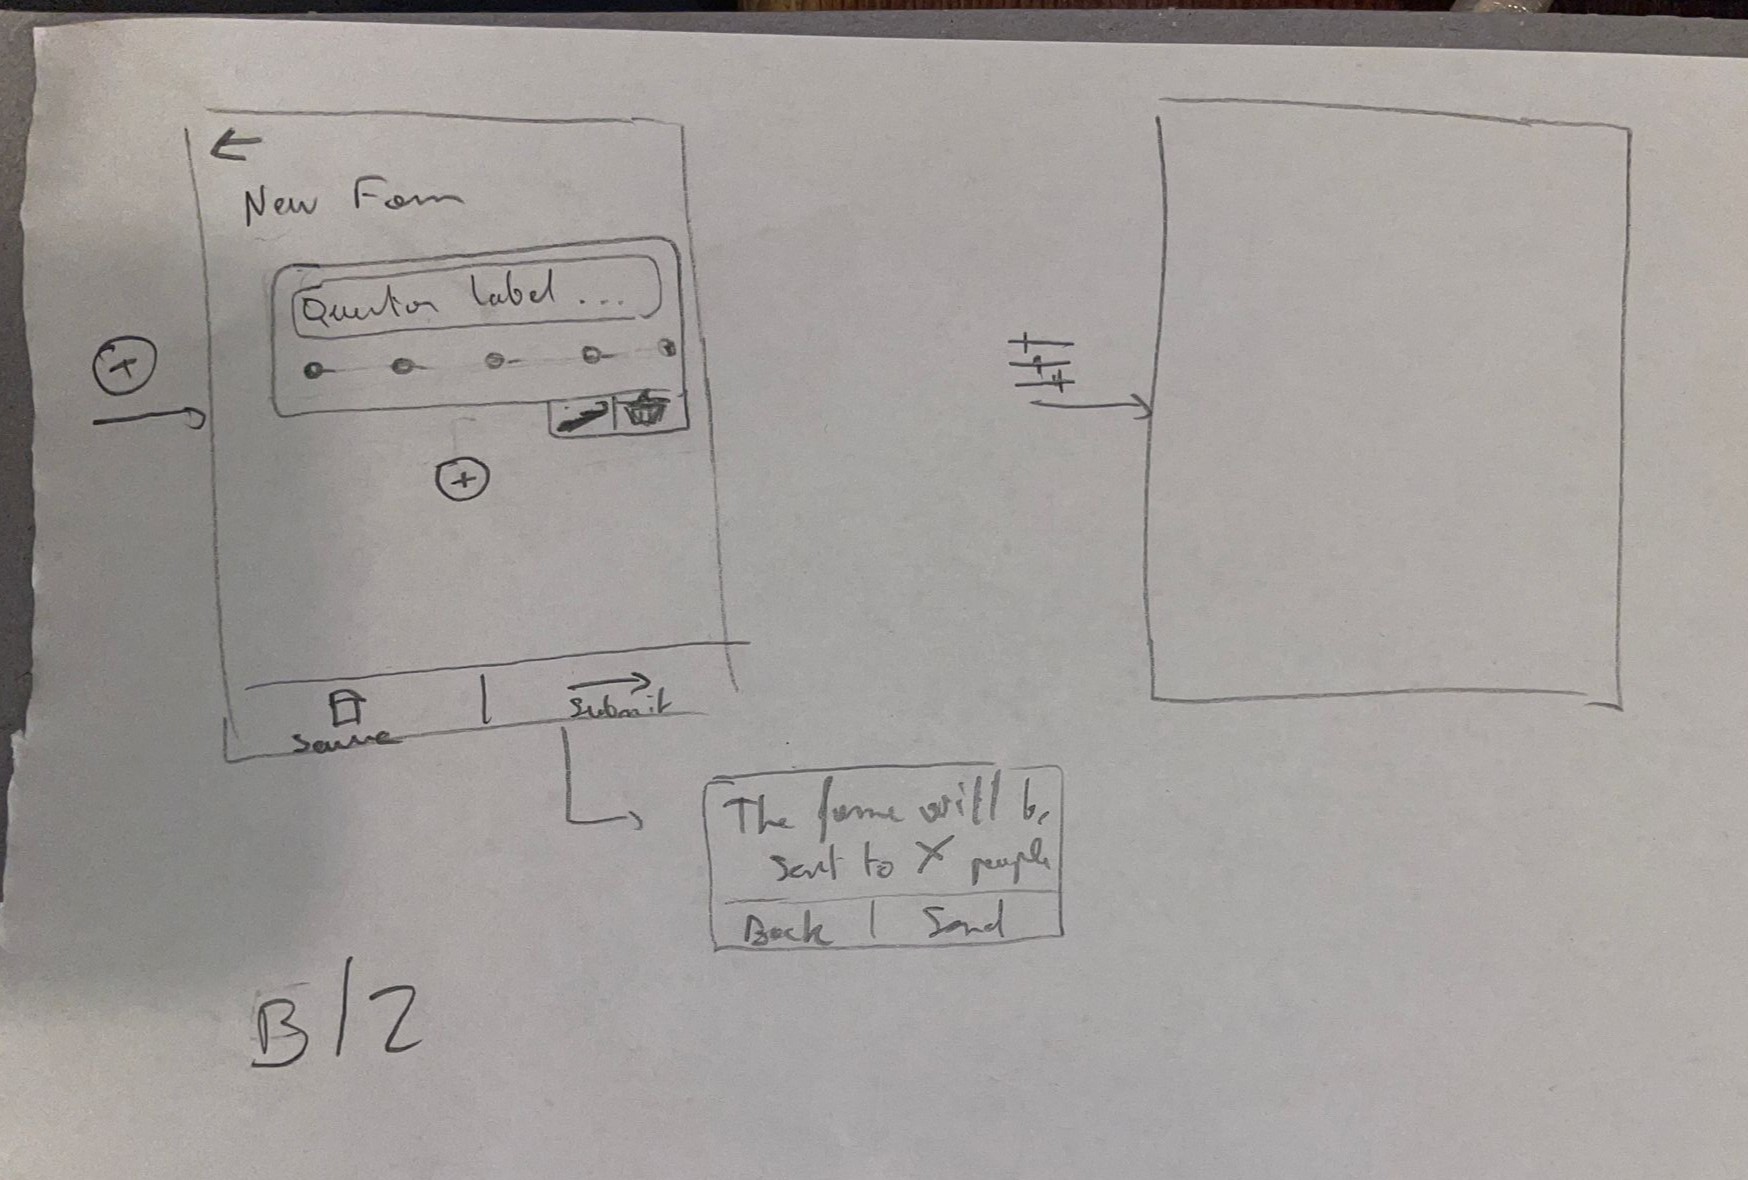 New Form
Question label ...
Save | Submit
The form will be
sent to X people
Back | Send
B/2